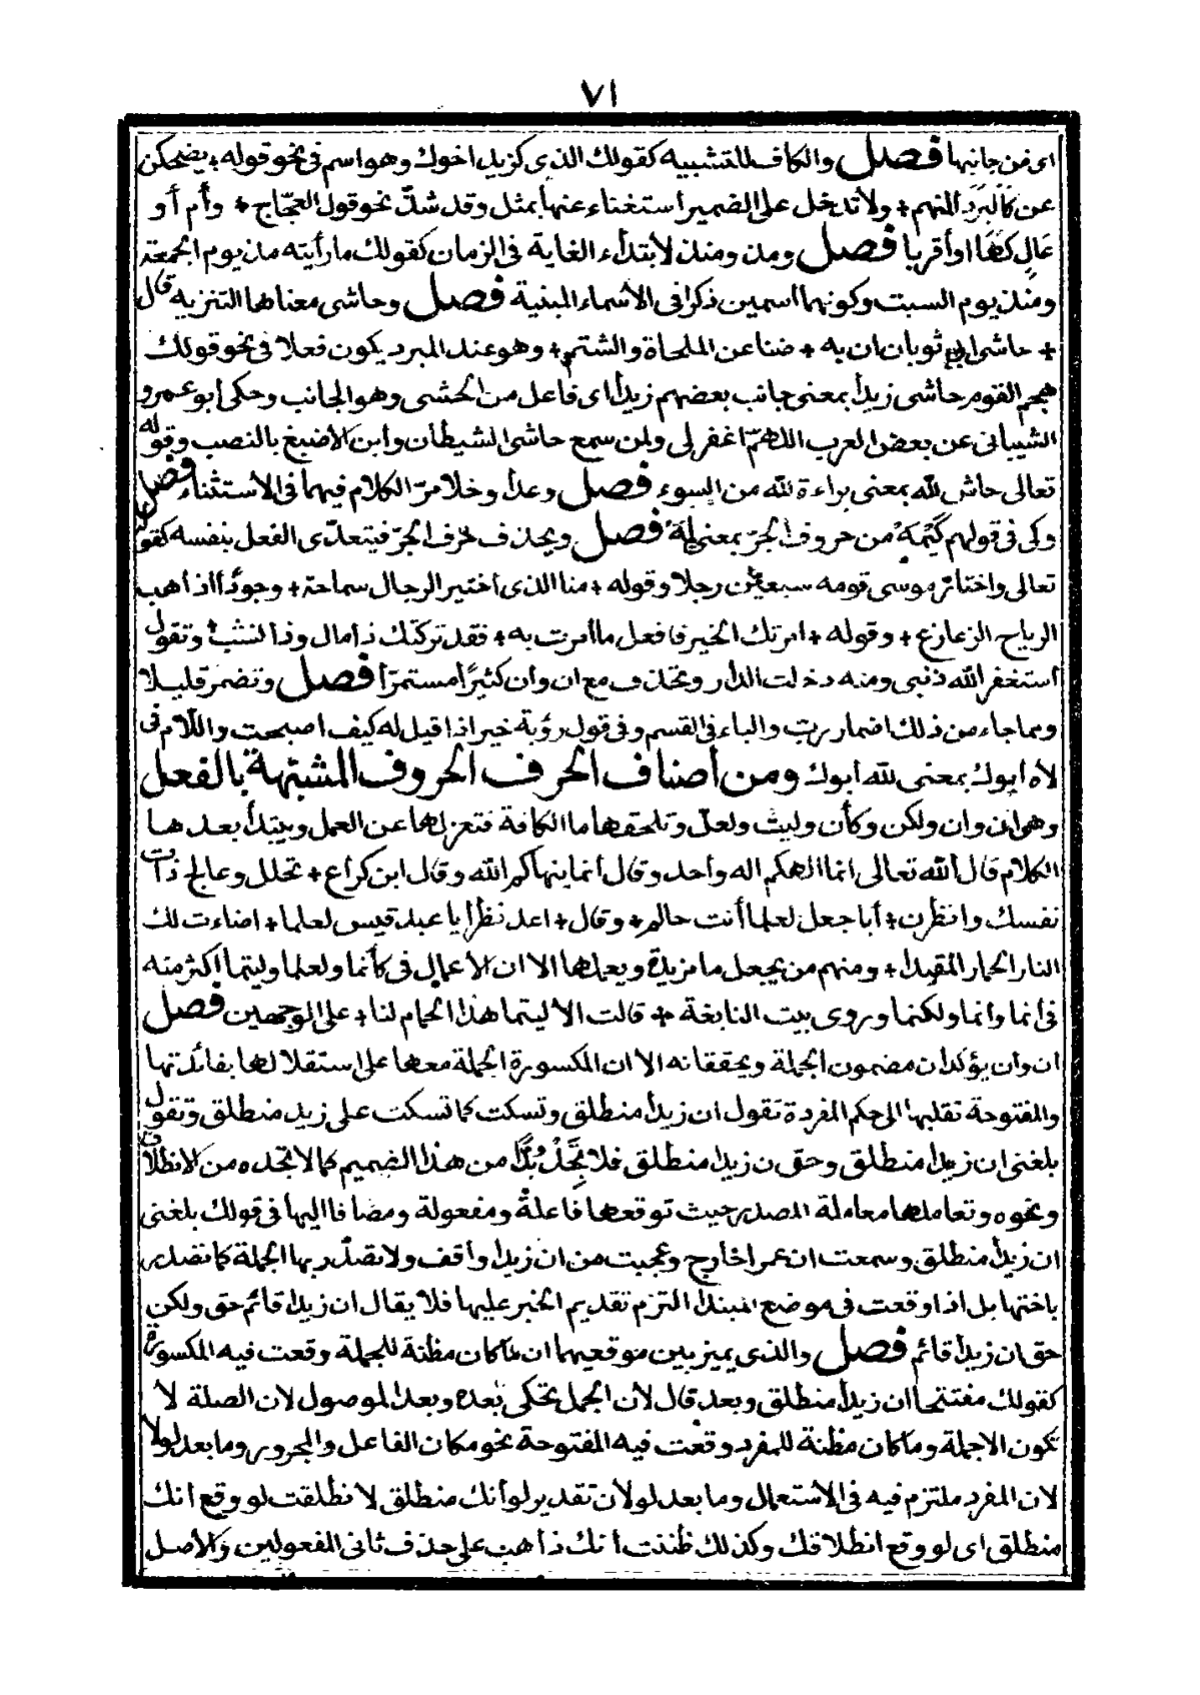 ٧١
اى من جانبها فصل والكاف للتشبيه كقولك الذى كزيد اخوك وهو اسم فى نحو قوله + يضحكن
عن كَالبَرَدِ المنهم + ولا تدخل على الضمير استغناء عنها بمثل وقد شذّ نحو قول العجّاج + وأم أو
عَالٍ كَهَا او أقربا فصل ومذ ومنذ لابتداء الغاية فى الزمان كقولك ما رأيته مذ يوم الجمعة
ومنذ يوم السبت وكونهما اسمين ذكر فى الاسماء المبنية فصل وحاشى معناها التنزيه قال
+ حاشى ابى ثوبان ان به + ضنا عن الملحاة والشتم + وهو عند المبرد يكون فعلا فى نحو قولك
هجم القوم حاشى زيدا بمعنى جانب بعضهم زيدا اى فاعل من الحشى وهو الجانب وحكى ابو عمرو
الشيبانى عن بعض العرب اللهمّ اغفر لى ولمن سمع حاشى الشيطان وابن الاصبغ بالنصب وقوله
تعالى حاش لله بمعنى براءة لله من السوء فصل وعدا وخلا مرّ الكلام فيهما فى الاستثناء فصل
وكى فى قولهم كَيْمَهْ من حروف الجرّ بمعنى لِمَهْ فصل ويحذف حرف الجرّ فيتعدّى الفعل بنفسه كقوله
تعالى واختار موسى قومه سبعين رجلا وقوله + منا الذى اختير الرجال سماحة + وجودا اذا هب
الرياح الزعازع + وقوله + امرتك الخير فافعل ما امرت به + فقد تركتك ذا مال وذا نشب وتقول
استغفر الله ذنبى ومنه دخلت الدار وتحذف مع ان وان كثيرًا مستمرّا فصل وتضمر قليلا
ومما جاء من ذلك اضمار ربّ والباء فى القسم وفى قول رؤبة خير اذا قيل له كيف اصبحت واللام فى
لاه ابوك بمعنى لله ابوك ومن أصناف الحرف الحروف المشبّهة بالفعل
وهى ان وان ولكن وكأن وليت ولعل وتلحقها ما الكافة فتعزلها عن العمل ويبتدأ بعدها
الكلام قال الله تعالى انما الهكم اله واحد وقال انما ينهاكم الله وقال ابن كراع + تحلل وعالج ذات
نفسك وانظرن + أبا جعل لعلما أنت حالم + وقال + اعد نظرا يا عبد قيس لعلما + اضاءت لك
النار الحمار المقيدا + ومنهم من يجعل ما مزيدة ويعملها الا ان الاعمال فى كأنما ولعلما وليتما اكثر منه
فى انما وانما ولكنما وروى بيت النابغة + قالت الا ليتما هذا الحمام لنا + على الوجهين فصل
ان وان يؤكدان مضمون الجملة ويحققانه الا ان المكسورة الجملة معها على استقلالها بفائدتها
والمفتوحة تقلبها الى حكم المفردة تقول ان زيدا منطلق وتسكت كما تسكت على زيد منطلق وتقول
بلغنى ان زيدا منطلق وحق ن زيدا منطلق فلا تَجِدُ بُدًّا من هذا الضميم كما لا تجده من الانطلاق
ونحوه وتعاملها معاملة المصدر حيث توقعها فاعلة ومفعولة ومضافا اليها فى قولك بلغنى
ان زيدا منطلق وسمعت ان عمرا خارج وعجبت من ان زيدا واقف ولا تصدّر بها الجملة كما تصدر
باختها بل اذا وقعت فى موضع المبتدا التزم تقديم الخبر عليها فلا يقال ان زيدا قائم حق ولكن
حق ان زيدا قائم فصل والذى يميز بين موقعيهما ان ما كان مظنة للجملة وقعت فيه المكسورة
كقولك مفتتحا ان زيدا منطلق وبعد قال لان الجمل تحكى بعده وبعد الموصول لان الصلة لا
تكون الا جملة وما كان مظنة للمفرد وقعت فيه المفتوحة نحو مكان الفاعل والمجرور وما بعد لولا
لان المفرد ملتزم فيه فى الاستعمال وما بعد لو لان تقدير لو أنك منطلق لانطلقت لو وقع انك
منطلق اى لو وقع انطلاقك وكذلك ظننت انك ذاهب على حذف ثانى المفعولين والاصل